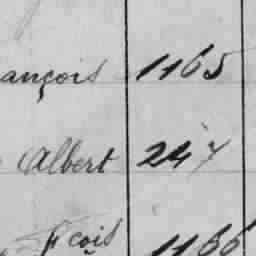 ançois 1165
Albert 247
fçois 1166